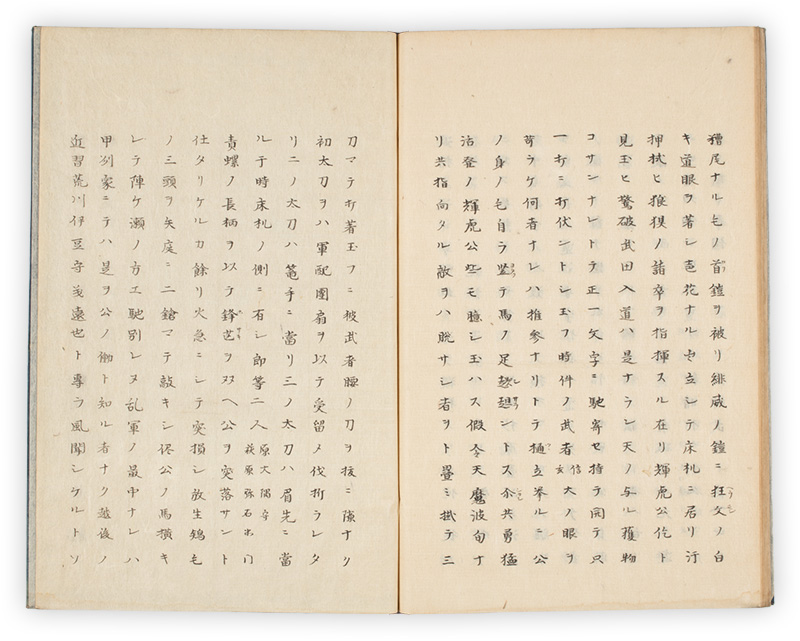 糟尾ナル毛ノ首鎧ヲ被リ緋蔵ノ鎧ニ狂文ノ白
キ道眼ヲ著シ芦花ナル セ立シテ床机ニ居リ汗
押拭ヒ推模ノ諸卒ヲ指揮スル在リ輝虎公佗ト
見玉ヒ驚破武田入道ハ是ナラン天ノ与ル獲物
コサンナレトテ正一文字ニ馳寄セ持テ開テ只
一打ニ打伏ントシ玉フ時件ノ武者 大ノ眼ヲ
苛ラケ何者ナレハ推参ナリトテ 立挙ルニ公
ノ身ノ毛自ラ竪テ馬ノ足 ントス余共勇猛
活発ノ輝虎公些モ臆シ玉ハス仮令天魔波旬ナ
リ共指向タル敵ヲハ脱サシ者ヲト畳ミ掛テ三
刀マテ打著玉フニ彼武者腰ノ刀ヲ抜ニ隙ナク
初太刀ヲハ軍配團扇ヲ以テ受留メ伐折ラレタ
リニノ太刀ハ篭手ニ當リ三ノ太刀ハ眉先ニ當
ル于時床机ノ側ニ有シ郎等二人 原大隅守 萩原弥右衛門
青螺ノ長柄ヲ以テ鋒芒ヲ双ヘ公ヲ突落サント
仕タリケルカ餘リ火急ニシテ突損シ放生鴾毛
ノ三頭ヲ矢庭ニ二鎗マテ敲キシ侭公ノ馬横キ
レテ陣ケ瀬ノ方エ馳別レヌ乱軍ノ最中ナレハ
甲刕家ニテハ是ヲ公ノ働ト知ル者ナク越後ノ
近習荒川伊豆守義遠也ト専ラ風聞シケルトソ